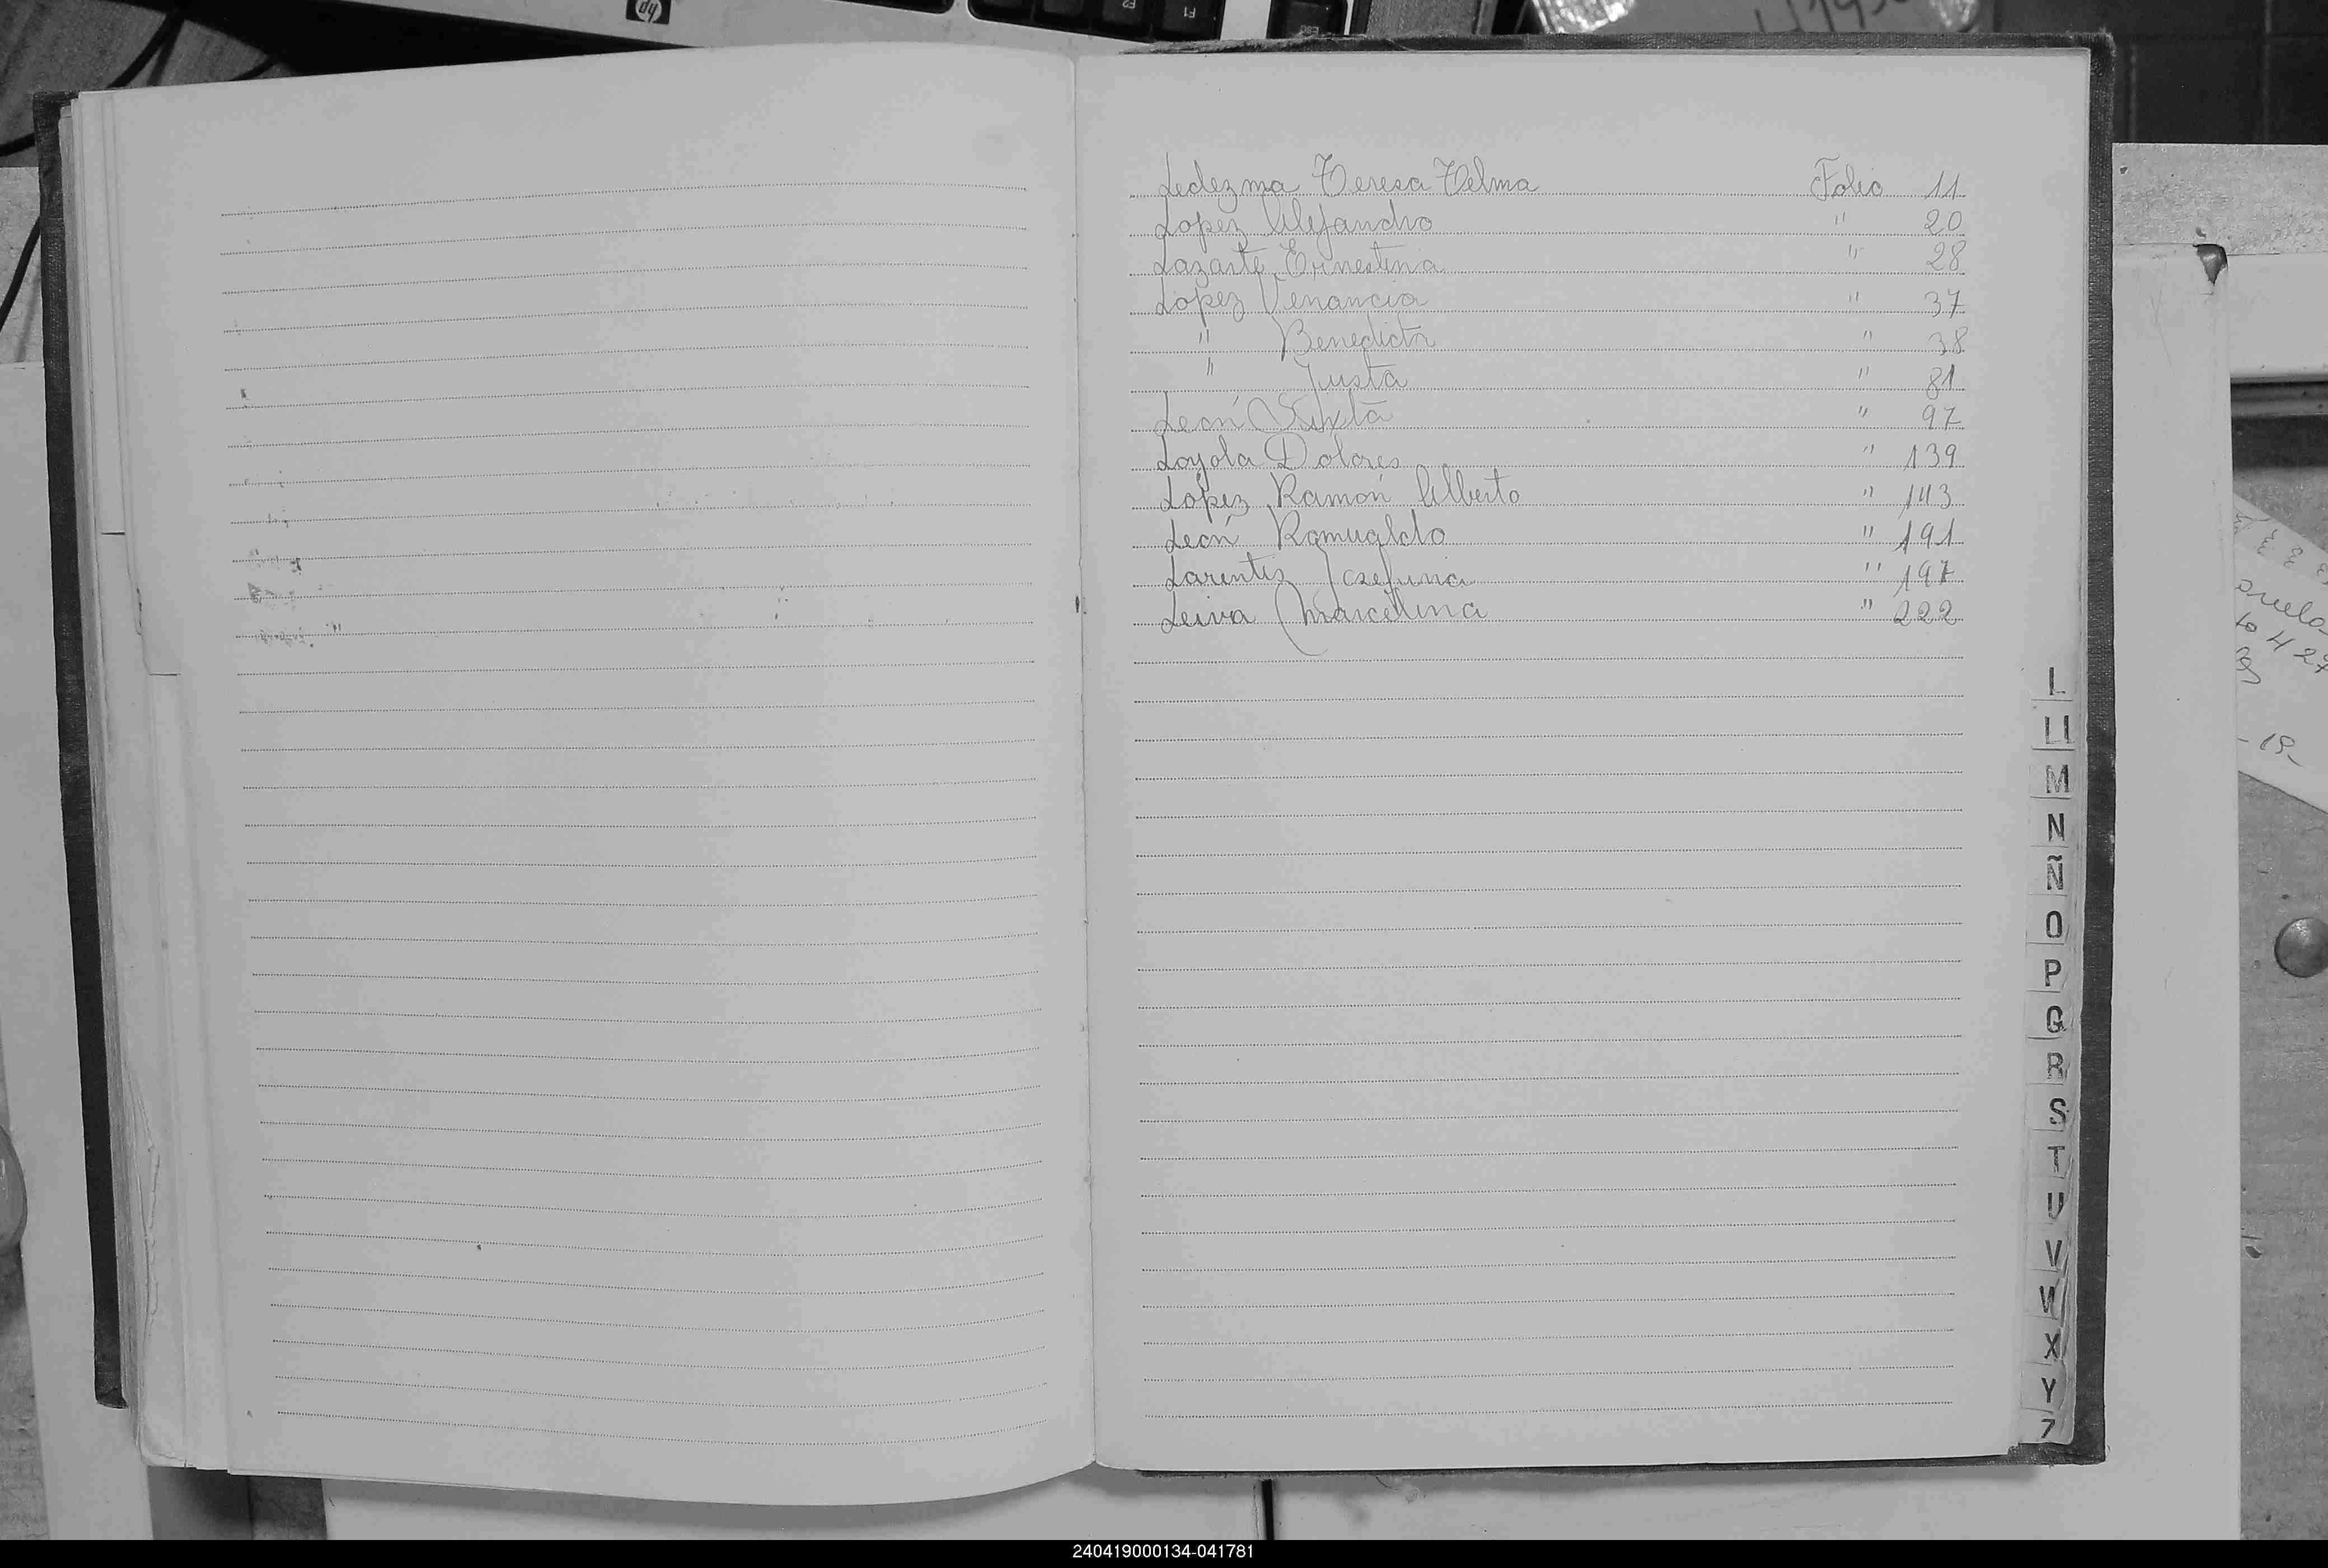 hp
Ledezma Teresa Telma Folio 11
Lopez Alejandro " 20
Lazarte Ernestina " 28
Lopez Venancia " 37
" Benedicta " 38
" Justa " 81
León Sixta " 97
Loyola Dolores " 139
López Ramón Alberto " 143
León Romualdo " 191
Larentis Josefina " 197
Leiva Marcelina " 222
L
Ll
M
N
Ñ
O
P
Q
R
S
T
U
V
W
X
Y
Z
240419000134-041781